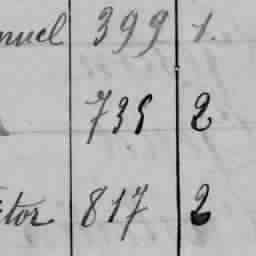 nuel 399 1.
735 2
itor 817 2